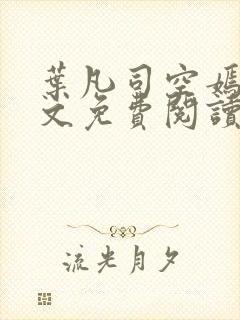 葉凡司空嫣
文免費閱讀
流光月夕